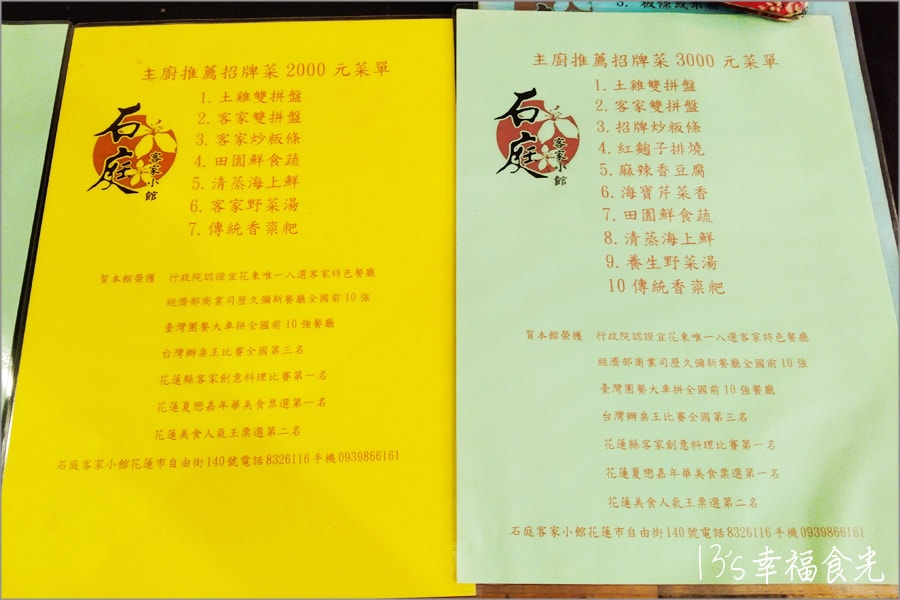 主廚推薦招牌菜 2000 元菜單
石庭
客家小館
1. 土雞雙拼盤
2. 客家雙拼盤
3. 客家炒粄條
4. 田園鮮食蔬
5. 清蒸海上鮮
6. 客家野菜湯
7. 傳統香粢粑
賀本館榮獲 行政院認證宜花東唯一入選客家特色餐廳
經濟部商業司歷久彌新餐廳全國前10強
臺灣團餐大車拼全國前10強餐廳
台灣辦桌王比賽全國第三名
花蓮縣客家創意料理比賽第一名
花蓮夏戀嘉年華美食票選第一名
花蓮美食人氣王票選第二名
石庭客家小館花蓮市自由街140號電話8326116手機0939866161
主廚推薦招牌菜 3000 元菜單
石庭
客家小館
1. 土雞雙拼盤
2. 客家雙拼盤
3. 招牌炒粄條
4. 紅麴子排燒
5. 麻辣香豆腐
6. 海寶芹菜香
7. 田園鮮食蔬
8. 清蒸海上鮮
9. 養生野菜湯
10 傳統香粢粑
賀本館榮獲 行政院認證宜花東唯一入選客家特色餐廳
經濟部商業司歷久彌新餐廳全國前10強
臺灣團餐大車拼全國前10強餐廳
台灣辦桌王比賽全國第三名
花蓮縣客家創意料理比賽第一名
花蓮夏戀嘉年華美食票選第一名
花蓮美食人氣王票選第二名
石庭客家小館花蓮市自由街140號電話8326116手機0939866161
13's幸福食光